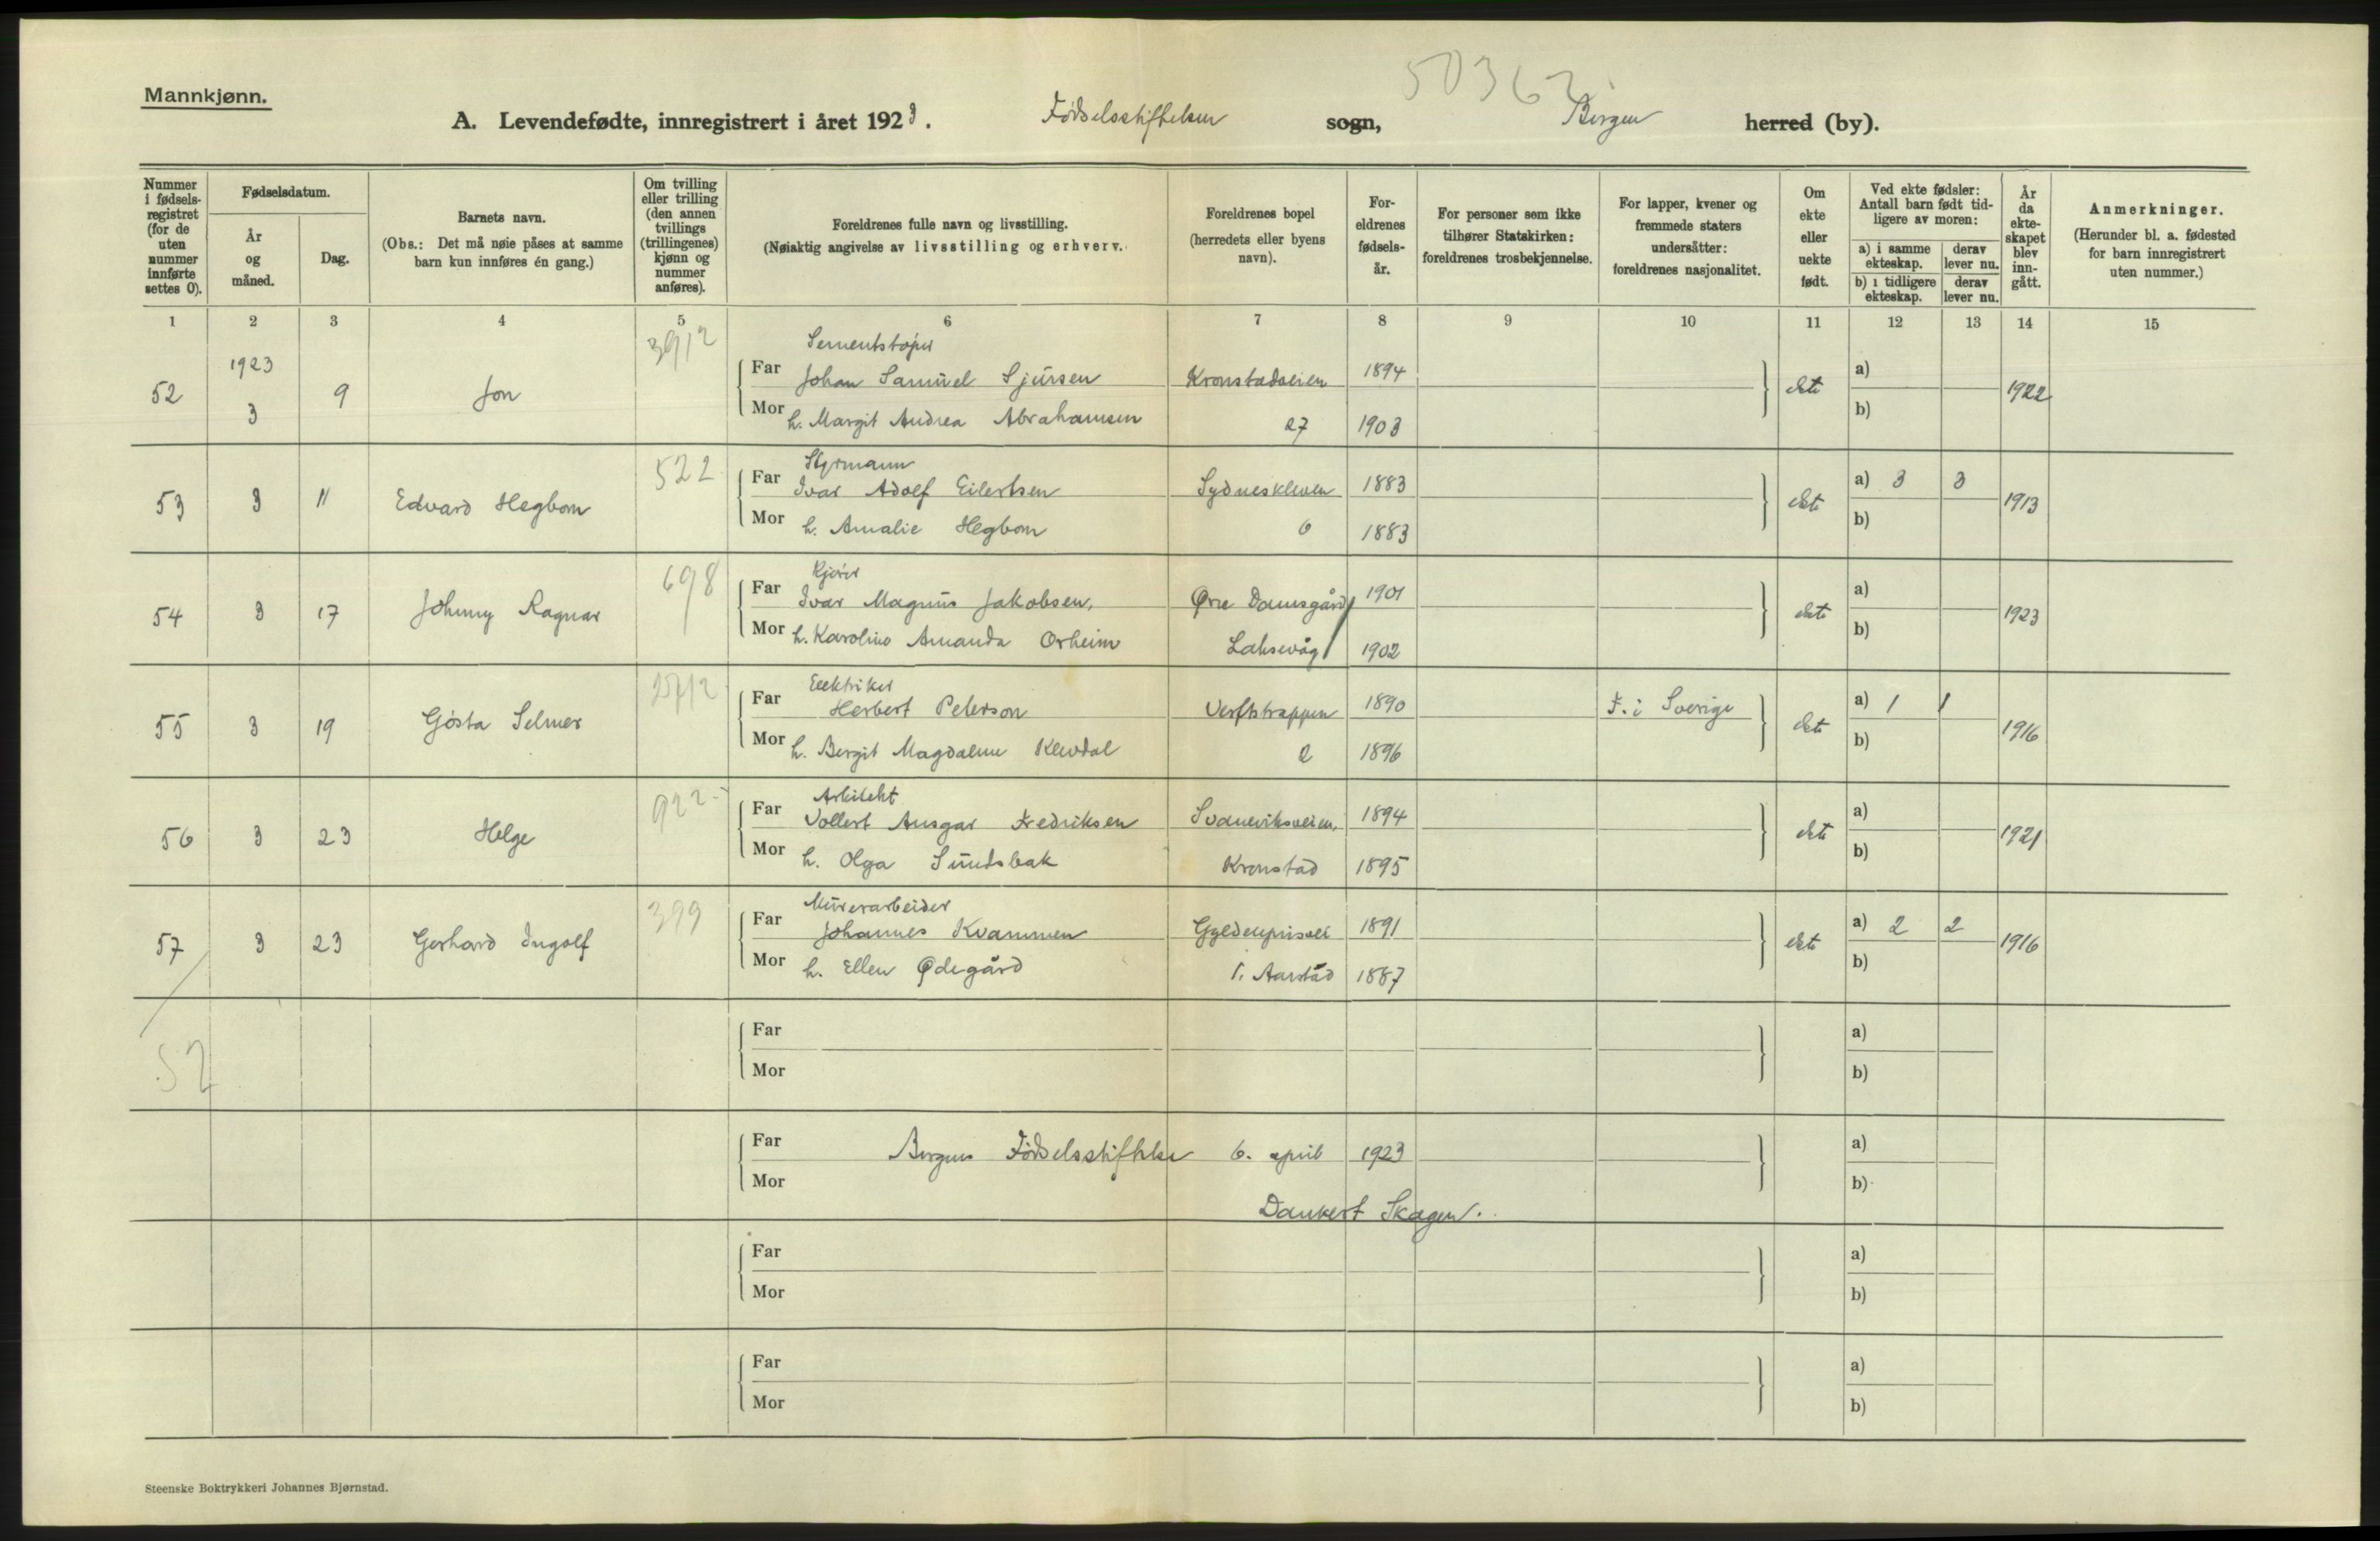 50362
Mannkjønn.
A. Levendefødte, innregistrert i året 1923. Fødselsstiftelsen sogn, Bergen herred (by).
Nummer i fødselsregistret (for de uten nummer innførte settes 0).
Fødselsdatum.
År og måned.
Dag.
Barnets navn.
(Obs.: Det må nøie påses at samme barn kun innføres én gang.)
Om tvilling eller trilling (den annen tvillings (trillingenes) kjønn og nummer anføres).
Foreldrenes fulle navn og livsstilling.
(Nøiaktig angivelse av livsstilling og erhverv.
Foreldrenes bopel (herredets eller byens navn).
Foreldrenes fødselsår.
For personer som ikke tilhører Statskirken: foreldrenes trosbekjennelse.
For lapper, kvener og fremmede staters undersåtter: foreldrenes nasjonalitet.
Om ekte eller uekte født.
Ved ekte fødsler: Antall barn født tidligere av moren:
a) i samme ekteskap. derav lever nu.
b) i tidligere ekteskap. derav lever nu.
År da ekteskapet blev inngått.
Anmerkninger.
(Herunder bl. a. fødested for barn innregistrert uten nummer.)
1 2 3 4 5 6 7 8 9 10 11 12 13 14 15
3912 Sementstøper
52 1923 3 9 Jon Far Johan Samuel Sjursen Kronstadveien 1894 ekte a) 1922
Mor h. Margit Andrea Abrahamsen 27 1903 b)
522 Styrmann
53 3 11 Edvard Hegbom Far Ivar Adolf Eilertsen Sydneskleven 1883 ekte a) 3 3 1913
Mor h. Amalie Hegbom 6 1883 b)
698 Kjører
54 3 17 Johnny Ragnar Far Ivar Magnus Jakobsen, Øvre Damsgård 1901 ekte a) 1923
Mor h. Karoline Amanda Orheim Laksevåg 1902 b)
Elektriker
55 3 19 Gösta Selmer Far Herbert Peterson Verftstrappen 1890 F. i Sverige ekte a) 1 1 1916
Mor h. Bergit Magdalene Klevdal 2 1896 b)
922 Arkitekt
56 3 23 Helge Far Vollert Ansgar Fredriksen Svaneviksveien, 1894 ekte a) 1921
Mor h. Olga Sundsbak Kronstad 1895 b)
399 Murerarbeider
57 3 23 Gerhard Ingolf Far Johannes Kvammen Gyldenprisvei 1891 ekte a) 2 2 1916
Mor h. Ellen Ødegård Aarstad 1887 b)
Far a)
52 Mor b)
Far Bergens Fødselsstiftelse 6. april 1923 a)
Mor b)
Dankert Skagen.
Far a)
Mor b)
Far a)
Mor b)
Steenske Boktrykkeri Johannes Bjørnstad.